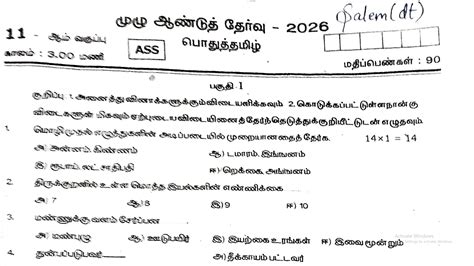 முழு ஆண்டுத் தேர்வு - 2026 Salem (dt)
11 - ஆம் வகுப்பு ASS பொதுத்தமிழ்
காலம் : 3.00 மணி மதிப்பெண்கள் : 90
பகுதி-I
குறிப்பு : 1. அனைத்து வினாக்களுக்கும் விடையளிக்கவும் 2. கொடுக்கப்பட்டுள்ள நான்கு
விடைகளுள் மிகவும் ஏற்புடைய விடையினைத் தேர்ந்தெடுத்துக் குறியீட்டுடன் எழுதவும்.
1. மொழிமுதல் எழுத்துகளின் அடிப்படையில் முறையானதைத் தேர்க. 14x1 = 14
அ) அன்னம், கிண்ணம் ஆ) டமாரம், இங்ஙனம்
இ) ரூபாய், லட்சாதிபதி ஈ) றெக்கை, அங்ஙனம்
2. திருக்குறளில் உள்ள மொத்த இயல்களின் எண்ணிக்கை
அ) 7 ஆ) 8 இ) 9 ஈ) 10
3. மண்ணுக்கு வளம் சேர்ப்பன
அ) மண்புழு ஆ) ஊடுபயிர் இ) இயற்கை உரங்கள் ஈ) இவை மூன்றும்
4. துன்பப்படுபவர் அ) தீக்காயம் பட்டவர்
Activate Windows